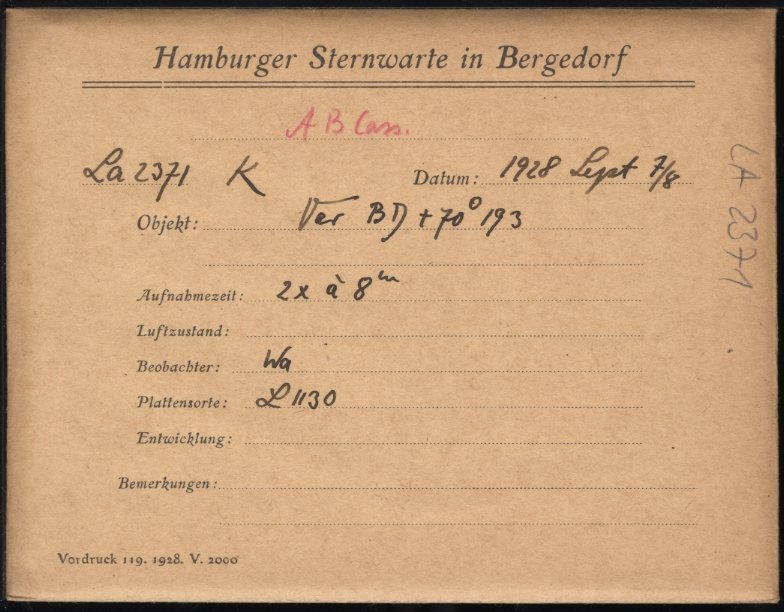 Hamburger Sternwarte in Bergedorf
AB Cass.
La 2371 K Datum: 1928 Sept 7/8
Objekt: Var BD + 70° 193
Aufnahmezeit: 2x à 8m
Luftzustand:
Beobachter: Wa
Plattensorte: L 1130
Entwicklung:
Bemerkungen:
Vordruck 119. 1928. V. 2000
LA 2371